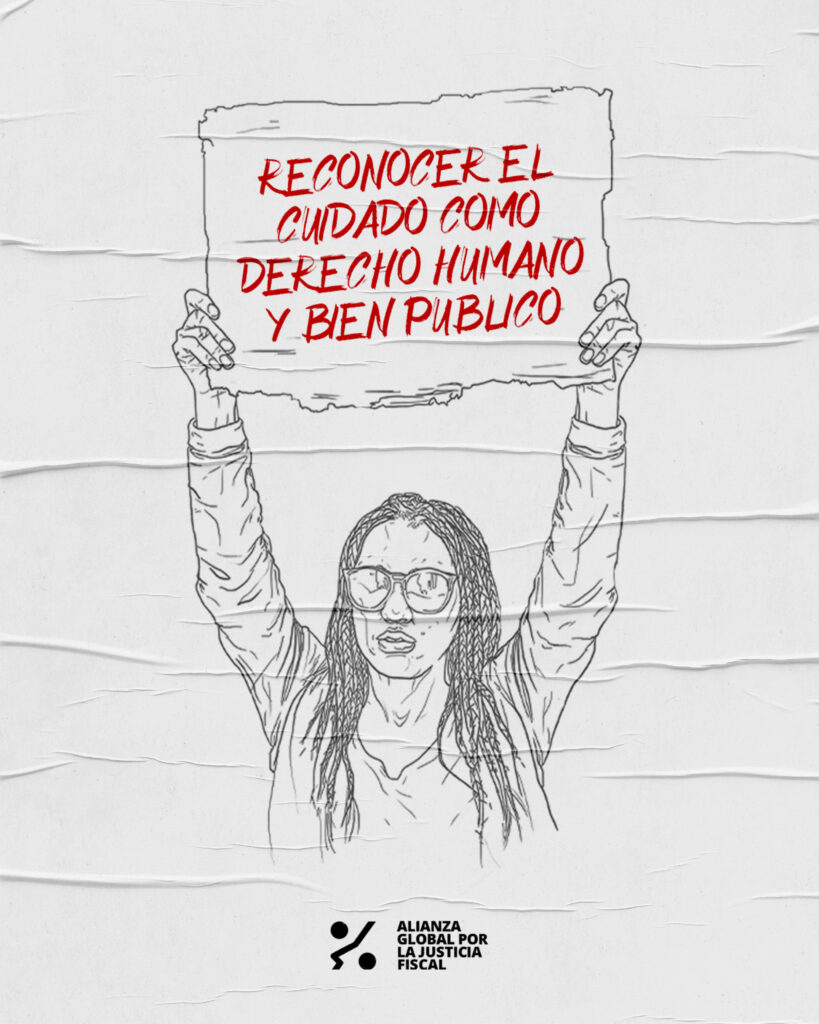 RECONOCER EL
CUIDADO COMO
DERECHO HUMANO
Y BIEN PUBLICO
ALIANZA
GLOBAL POR
LA JUSTICIA
FISCAL